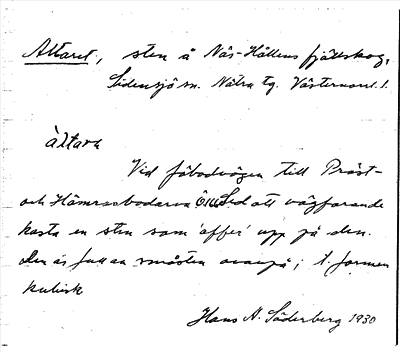 Altaret, sten å Näs-Hållens fjällskog,
Sidensjö sn. Nätra tg. Västernorrl. l.
altarn
Vid fäbodvägen till Präst-
och Hämrasbodarna. Sed att vägfarande
kasta en sten som 'offer' upp på den.
Den är full av småsten ovanpå; t. formen
kubisk
Hans A. Söderberg 1930